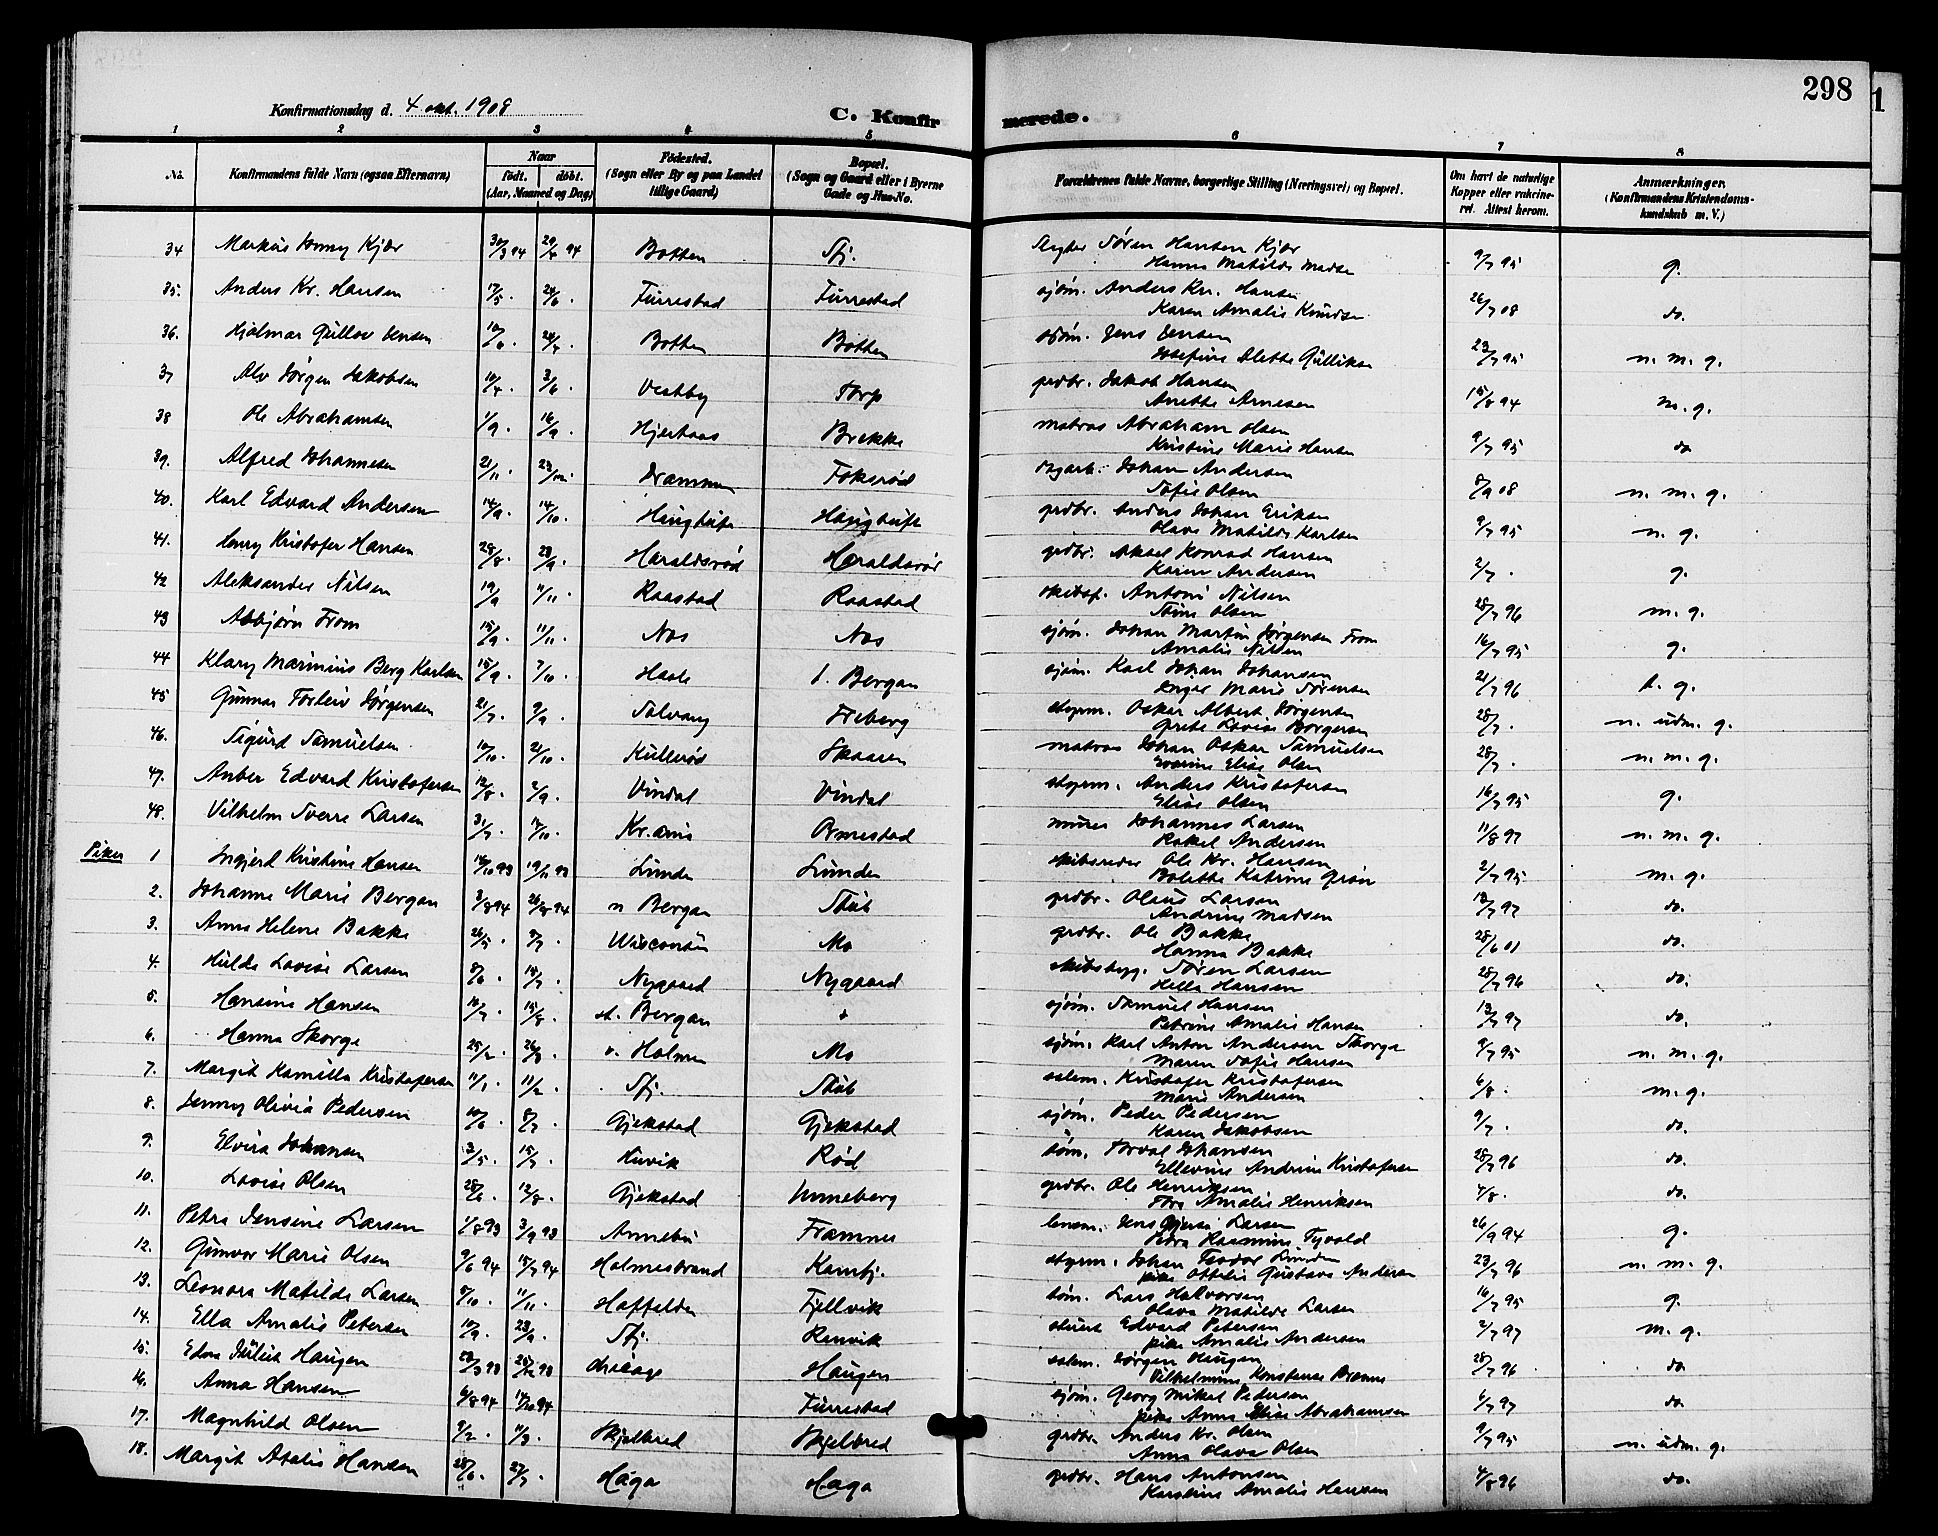 298
Konfirmationsdag d. 4 okt. 1908
C. Konfirmerede.
1 2 3 4 5 6 7 8
No. Konfirmandens fulde Navn (ogsaa Efternavn) Naar født. døbt. (Aar, Maaned og Dag) Fødested. (Sogn eller By og paa Landet tillige Gaard) Bopæl. (Sogn og Gaard eller i Byerne Gade og Hus-No. Forældrenes fulde Navne, borgerlige Stilling (Næringsvei) og Bopæl. Om havt de naturlige Kopper eller vakcineret. Attest herom. Anmærkninger. (Konfirmandens Kristendomskundskab m. V.)
34 Markus Kjær 30/3 94 29/4 94 Botten Sfj. Søren Hansen Kjær 9/7 95 g.
Hanna Matilde Madsen
35. Anders Kr. Hansen 17/5. 24/6. Furrestad Furrestad sjøm. Anders Kr. Hansen 26/7 08 do.
Karen Amalie Knudsen
36. Hjalmar Gullov Jensen Botten Botten sjøm. Jens Jensen 23/7 95 n. m. g.
Josefine Alette Gulliksen
37 Alv Jørgen Jakobsen 10/4. 3/6. Vestby Torp grdbr. Jakob Hansen 15/8 94 m. g.
Anette Arnesen
38 Ole Abrahamsen 1/9. 16/9. Hjertaas Brekke matros Abraham Olsen 9/7 95 do
Kristine Marie Hansen
39. Alfred Johannesen 21/11. Drammen Fokserød dagarb. Johan Andersen 8/9 08 n. m. g.
Sofie Olsen
40. Karl Edvard Andersen 14/9. 14/10. Haugtuft Haugtuft grdbr. Anders Johan Eriksen 9/7 95 n. g.
Olava Matilde Karlsen
41. Henry Kristofer Hansen 28/8. 23/9. Haraldsrød Haraldsrød grdbr. Aksel Konrad Hansen 2/7. g.
Karen Andersen
42 Aleksander Nilsen 19/9 4/11. Raastad Raastad skibsf. Antoni Nilsen 28/7 96 m. g.
Stine Olsen
43 Asbjørn From 15/9. 11/11. Nes Nes sjøm. Johan Martin Jørgensen From 16/7 95 g.
Amalie Nilsen
44 Klary Marinius Berg Karlsen 15/9. 7/10. Hasle l. Bergan sjøm. Karl Johan Johansen 21/7 96 t. g.
Inger Marie Sørensen
45 Gunnar Torleiv Jørgensen 21/7. 9/9. Solvang Freberg styrm. Oskar Albert Jørgensen 28/7. n. udm. g.
Grete Lovise Borgersen
46. Sigurd Samuelsen 10/10. 21/10. Kullerød Skaaren matros Johan Oskar Samuelsen 28/7. n. m. g.
Evarine Elise Olsen
47. Anber Edvard Kristofersen 12/8. 2/9. Vindal Vindal styrm. Anders Kristofersen 16/7 95 g.
Elise Olsen
48. Vilhelm Sverre Larsen 31/7. 14/10. Kr.ania Ormestad murer Johannes Larsen 11/8 97 n. m. g.
Rakel Andersen
Piker 1 Ingjerd Kristine Hansen 16/10 93 19/11 93 Lunden Lunden skibsreder Ole Kr. Hansen 2/7 95 m. g.
Bolette Katrine Grøn
2. Johanne Marie Bergan 3/8 94 26/8 94 n Bergan Stub grdbr. Olaus Larsen 13/7 97 do.
Andrine Madsen
3. Anna Helene Bakke 26/5. 8/7. Wisconsin Mo grdbr. Ole Bakke 28/6 01 do.
Hanna Bakke
4. Hulda Lovise Larsen 8/6. 15/7. Nygaard Nygaard skibsbyg. Søren Larsen 28/7 96 do.
Hella Hansen
5. Hansine Hansen 10/7. 15/8. st. Bergan + sjøm. Samuel Hansen 13/7 97 do.
Petrine Amalie Hansen
6. Hanna Skorge 25/2. 26/3. v. Holmen Mo sjøm. Karl Anton Andersen Skorge 9/7 95 n. m. g.
Maren Sofie Hansen
7. Margit Kamilla Kristofersen 11/1. 11/2. Sfj. Stub salem. Kristofer Kristofersen 6/8. m. g.
Marie Andersen
8. Jenny Olivia Pedersen 10/6. 8/7. Gjekstad Gjekstad sjøm. Peder Pedersen 9/7. do.
Karen Jakobsen
9. Elvira Johansen 3/5. 15/7. Huvik Rød tøm. Torval Johansen 28/7 96 do.
Ellevine Andrine Kristofersen
10. Lovise Olsen 28/6. 12/8. Gjekstad Unneberg grdbr. Ole Henriksen 4/8. do.
Tora Amalie Henriksen
11. Petra Jensine Larsen 1/8 93 3/9 93 Annebu Framnes lensm. Jens Larsen 26/9 94 g.
Petra Rasmine Tyvold
12. Gunvor Marie Olsen 9/6 94 15/7 94 Holmestrand Kamfj. styrm. Johan Teodor Lunden 23/7 96 n. m. g.
pike Ottalie Gustava Andersen
13. Leonora Matilde Larsen 8/10. 11/11. Haffelden Fjellvik tøm. Lars Halvorsen 16/7 95 g.
Olava Matilde Larsen
14. Ella Amalie Petersen 10/9. 23/9. Sfj. Renvik stuert Edvard Petersen 2/7 97 m. g.
pike Amalie Andersen
15. Edna Juliet Haugen chicago Haugen salem. Jørgen Haugen 28/7 96 do
Vilhelmine Konstanse
16. Anna Hansen 6/8 94 14/10 94 Furrestad sjøm. Georg Mikal Pedersen 6/7 97 do
pike Anna Elise Abrahamsen
17. Magnhild Olsen 9/2. 11/3. Skjelbred Skjelbred grdbr. Anders Kr. Olsen 9/7 95 n. udm. g.
Anna Olava Olsen
18. Margit Atalie Hansen 28/6. 27/7. Haga Haga grdbr. Hans Antonsen 4/8 96 do.
Karoline Amalie Hansen